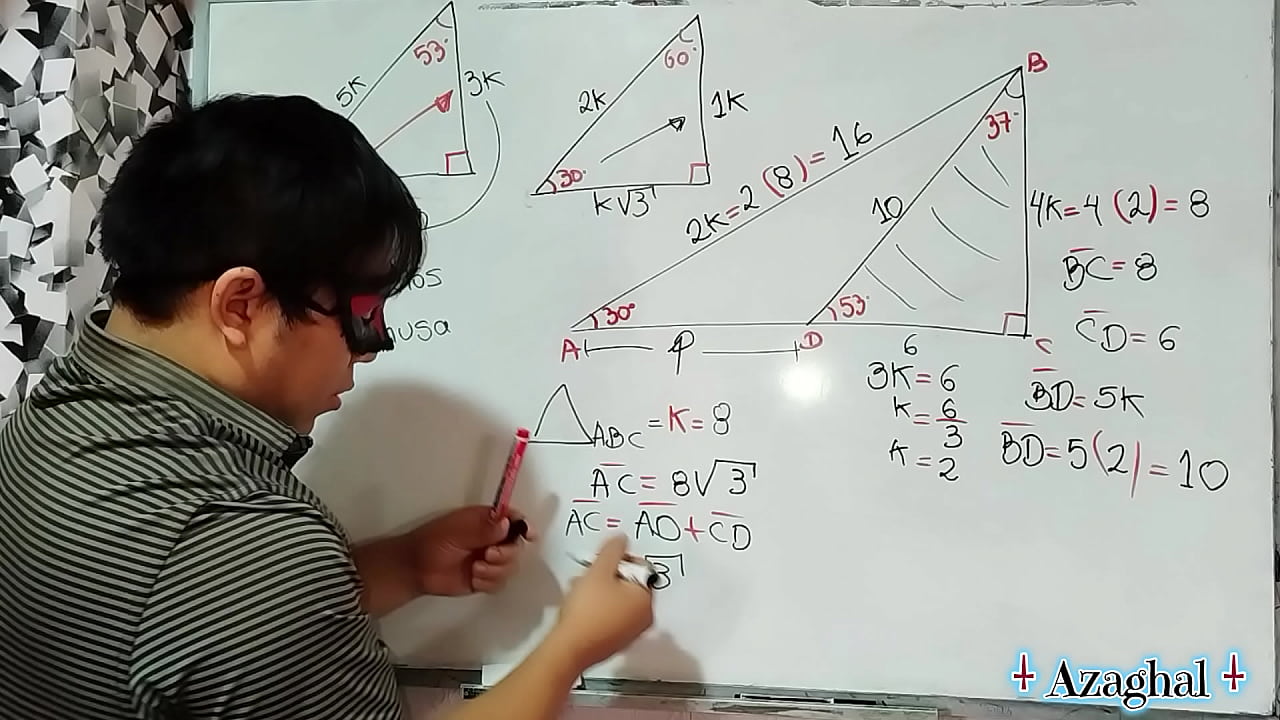 53°
5K
3K
60°
2K
1K
30°
K√3
B
37°
2K=2 (8)= 16
10
4K=4 (2)= 8
BC=8
CD=6
30°
53°
A
φ
D
C
6
3K=6
K=6/3
K=2
BD=5K
BD=5(2)=10
ABC=K=8
AC=8√3
AC=AD+CD
√3
Azaghal